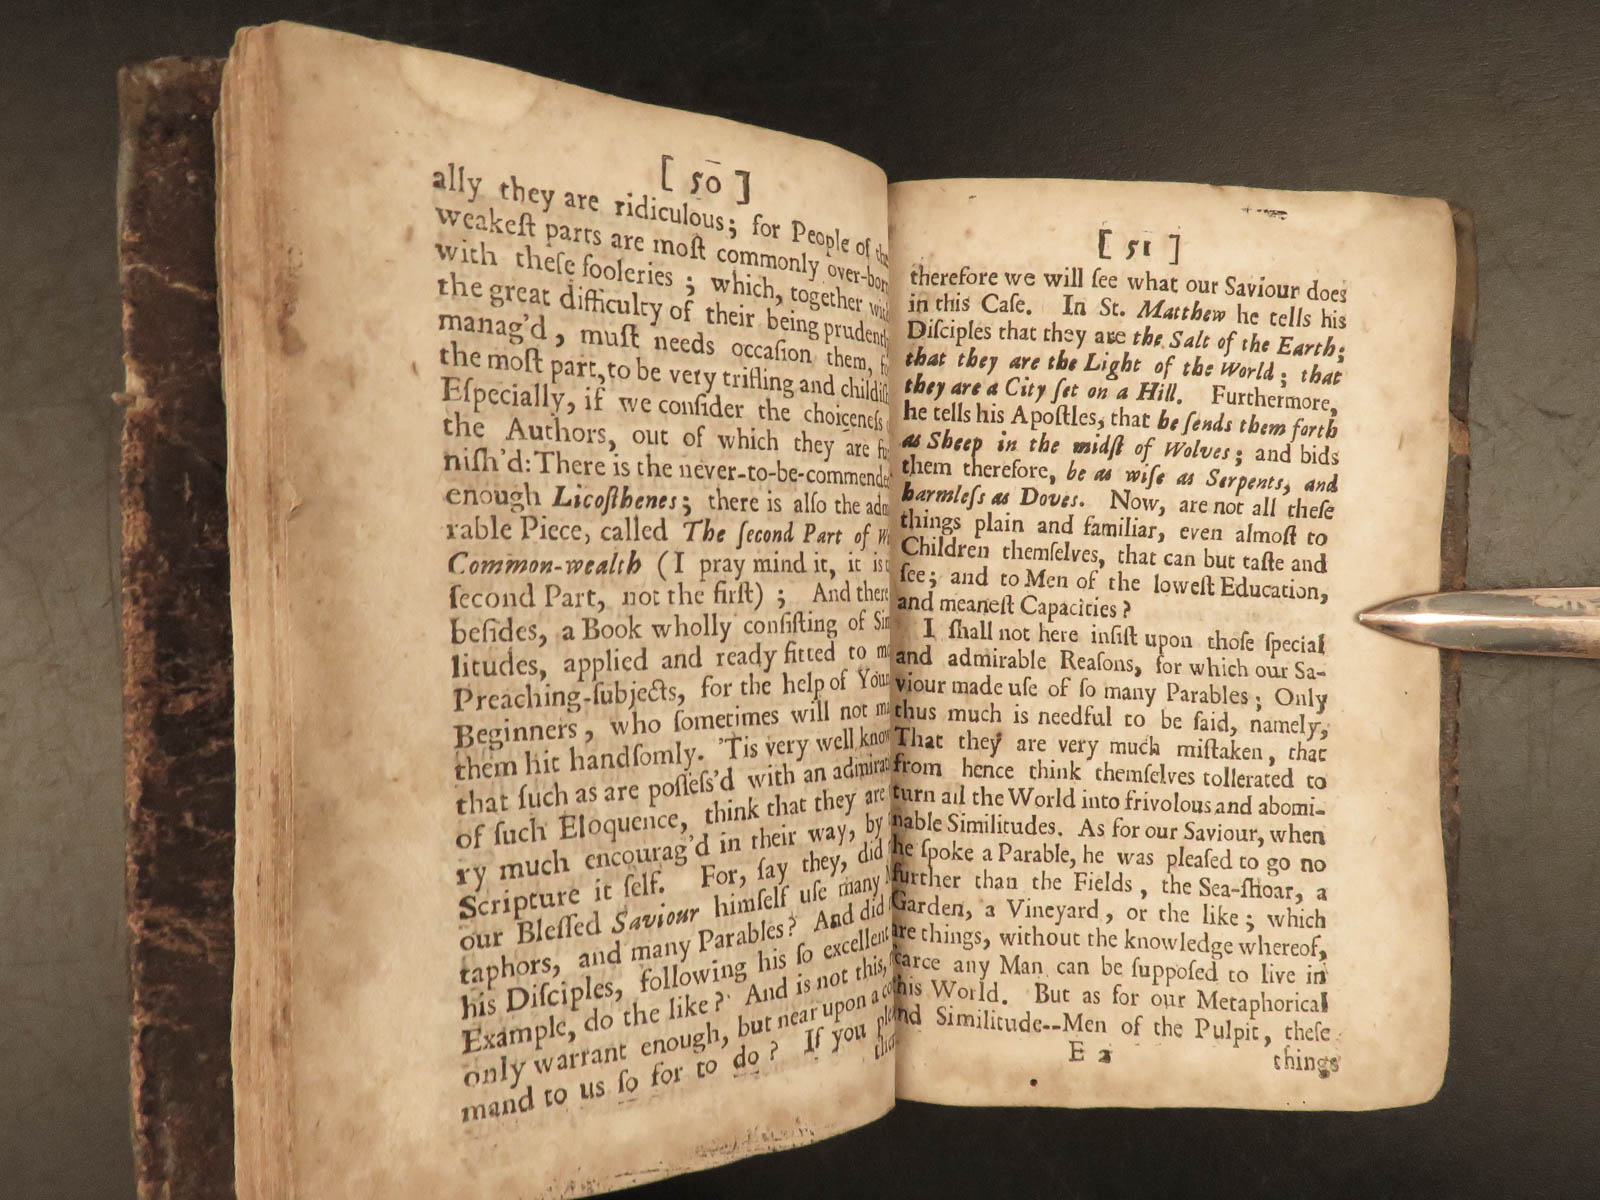 [ 50 ]
ally they are ridiculous; for People of the
weakeſt parts are moſt commonly over-born
with theſe fooleries; which, together with
the great difficulty of their being prudently
manag'd, muſt needs occaſion them,
the moſt part, to be very trifling and childiſh
Eſpecially, if we conſider the choiceneſs
the Authors, out of which they are
niſh'd: There is the never-to-be-commended
enough Licoſthenes; there is alſo the
rable Piece, called The ſecond Part of
Common-wealth (I pray mind it, it is
ſecond Part, not the firſt); And there
beſides, a Book wholly conſiſting of
litudes, applied and ready fitted to
Preaching-ſubjects, for the help of
Beginners, who ſometimes will not
them hit handſomly. 'Tis very well
that ſuch as are poſſeſs'd with an
of ſuch Eloquence, think that they are
ry much encourag'd in their way, by
Scripture it ſelf. For, ſay they, did
our Bleſſed Saviour himſelf uſe many
taphors, and many Parables? And did
his Diſciples, following his ſo excellent
Example, do the like? And is not this,
only warrant enough, but near upon a
mand to us ſo for to do? If you

[ 51 ]
therefore we will ſee what our Saviour does
in this Caſe. In St. Matthew he tells his
Diſciples that they are the Salt of the Earth;
that they are the Light of the World; that
they are a City ſet on a Hill. Furthermore,
he tells his Apoſtles, that he ſends them forth
as Sheep in the midſt of Wolves; and bids
them therefore, be as wiſe as Serpents, and
harmleſs as Doves. Now, are not all theſe
things plain and familiar, even almoſt to
Children themſelves, that can but taſte and
ſee; and to Men of the loweſt Education,
and meaneſt Capacities?
I ſhall not here inſiſt upon thoſe ſpecial
and admirable Reaſons, for which our Sa-
viour made uſe of ſo many Parables; Only
thus much is needful to be ſaid, namely,
That they are very much miſtaken, that
from hence think themſelves tollerated to
turn all the World into frivolous and abomi-
nable Similitudes. As for our Saviour, when
he ſpoke a Parable, he was pleaſed to go no
further than the Fields, the Sea-ſhoar, a
Garden, a Vineyard, or the like; which
are things, without the knowledge whereof,
ſcarce any Man can be ſuppoſed to live in
this World. But as for our Metaphorical
and Similitude--Men of the Pulpit, theſe
E 2 things